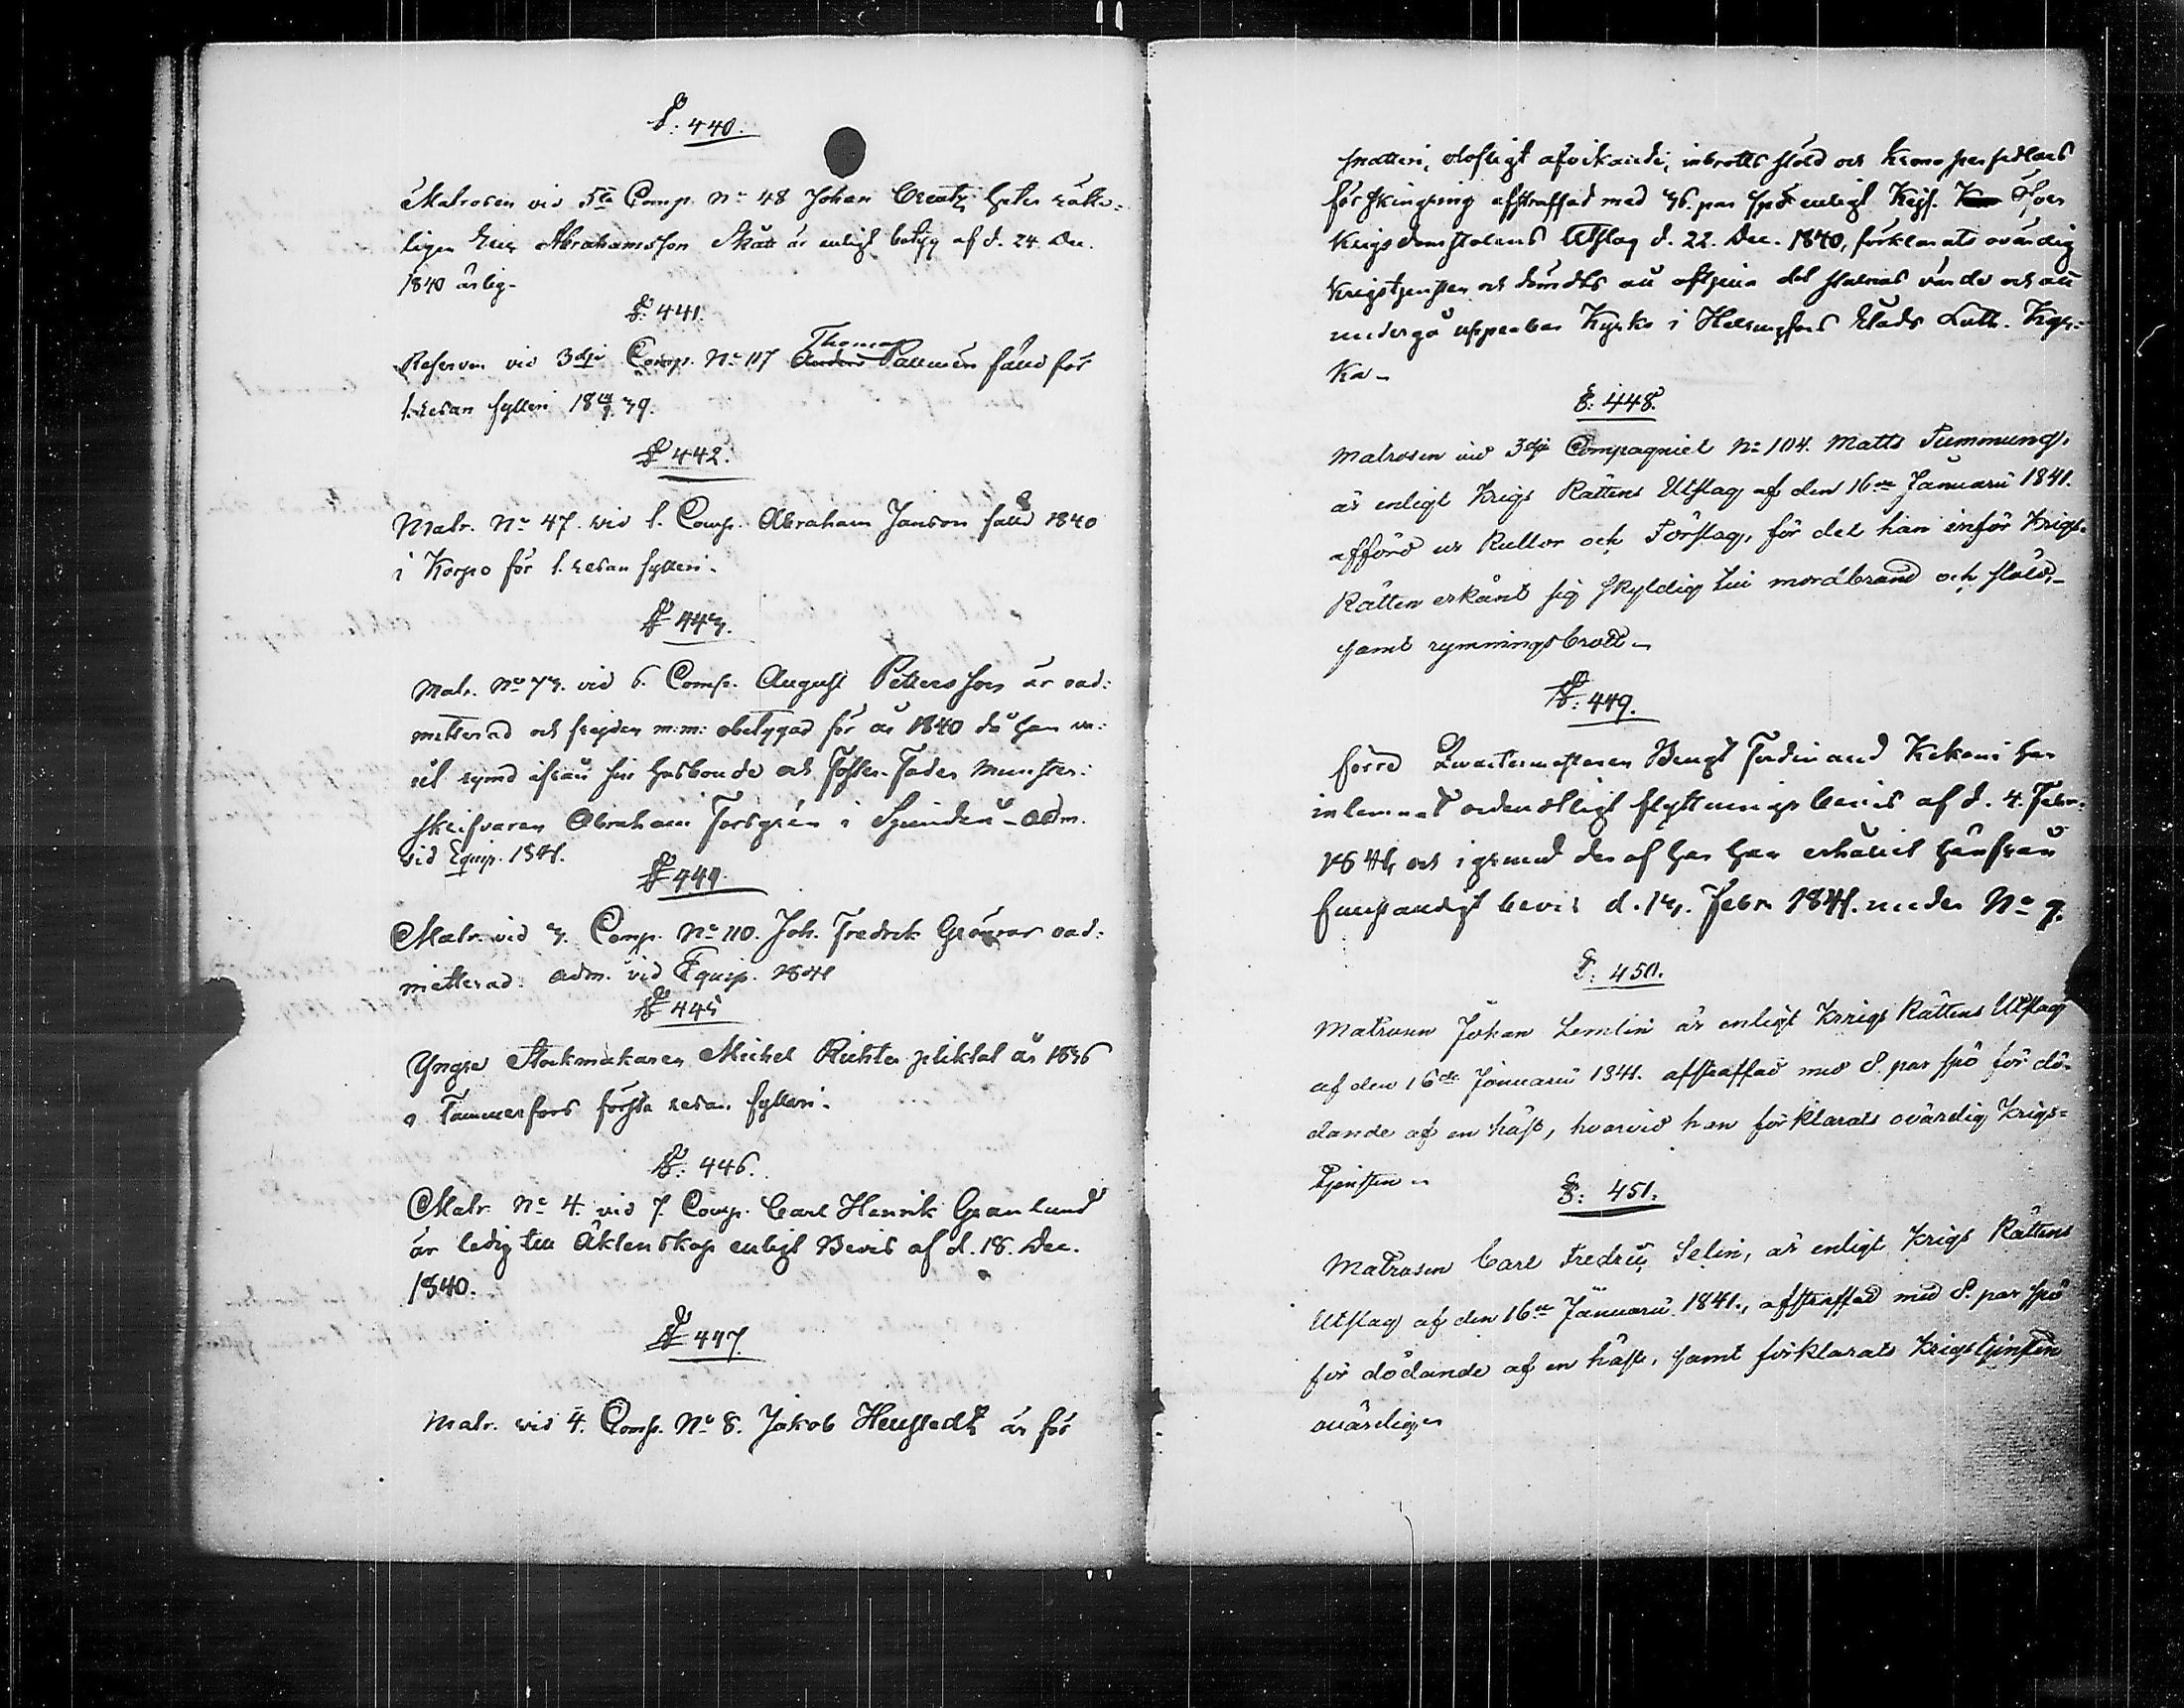 §. 440.
Matrosen vid 5te Comp. No 48 Johan Creutz heter rätte-
ligen Eric Abrahamsson Skätt är enligt betyg af d. 24. Dec.
1840 ärlig.
§. 441.
Reserven vid 3dje Comp. No 117 Anders Thomas fälld för
1. resan fylleri 39.
§ 442.
Matr. No 47. vid 1. Comp. Abraham Janson fälld 1840
i Korpo för 1. resan fylleri.
§ 443.
Matr. No 73. vid 6. Comp. August Pettersson är oad-
mitterad och frejden m:m: obetygad för år 1840 då han va-
rit rymd ifrån sin husbonde och foster-fader Munster-
skrifvaren Abraham Forsgrén i Spinderi. Adm.
vid Equip. 1841.
§ 444.
Matr. vid 3. Comp. No 110. Joh. Fredrik oad-
mitterad. adm. vid Equip. 1841
§ 445
Yngre Stockmakaren Michel Richter pliktat år 1836
i Tammerfors första resan fylleri.
§. 446.
Matr. No 4. vid 7. Comp. Carl Henrik Granlund
är ledig till Äktenskap enligt Bevis af d. 18. Dec.
1840.
§ 447.
Matr. vid 4. Comp. No 8. Jakob är för
snatteri, olofligt afvikande, inbrotts stöld och Krono persedlars
förskingring afstraffad med 36. par spö enligt Kejs. Öfver
Krigsdomstolens Utslag d. 22. Dec. 1840, förklarats ovärdig
Krigstjensten och dömdts att aftjena det stulnas värde och att
undergå uppenbar Kyrko i Helsingfors Stads Luth. Kyr-
ka
§. 448.
Matrosen vid 3dje Compagniet No 104. Matts Tummung,
är enligt Krigs Rättens Utslag af den 16de Januarii 1841.
afförd ur Rullor och Förslag, för det han inför Krigs-
Rätten erkänt sig skyldig till mordbrand och stöld,
samt rymningsbrott.
§. 449.
förre Quartermästaren Bengt Ferdinand Kekoni har
inlemnat ordentligt flyttnings bevis af d. 4. Febr.
1841 och i grund deraf har han erhållit härifrån
bevis d. 13. Febr. 1841. under No 7.
§. 450.
Matrosen Johan Lemlin är enligt Krigs Rättens Utslag
af den 16de Januarii 1841. afstraffad med 8. par spö för dö-
dande af en häst, hvarvid han förklarats ovärdig Krigs-
tjensten
§. 451.
Matrosen Carl Fredric Selin, är enligt Krigs Rättens
Utslag af den 16de Januarii 1841., afstraffad med 8. par spö
för dödande af en häst, samt förklarats Krigstjensten
ovärdig